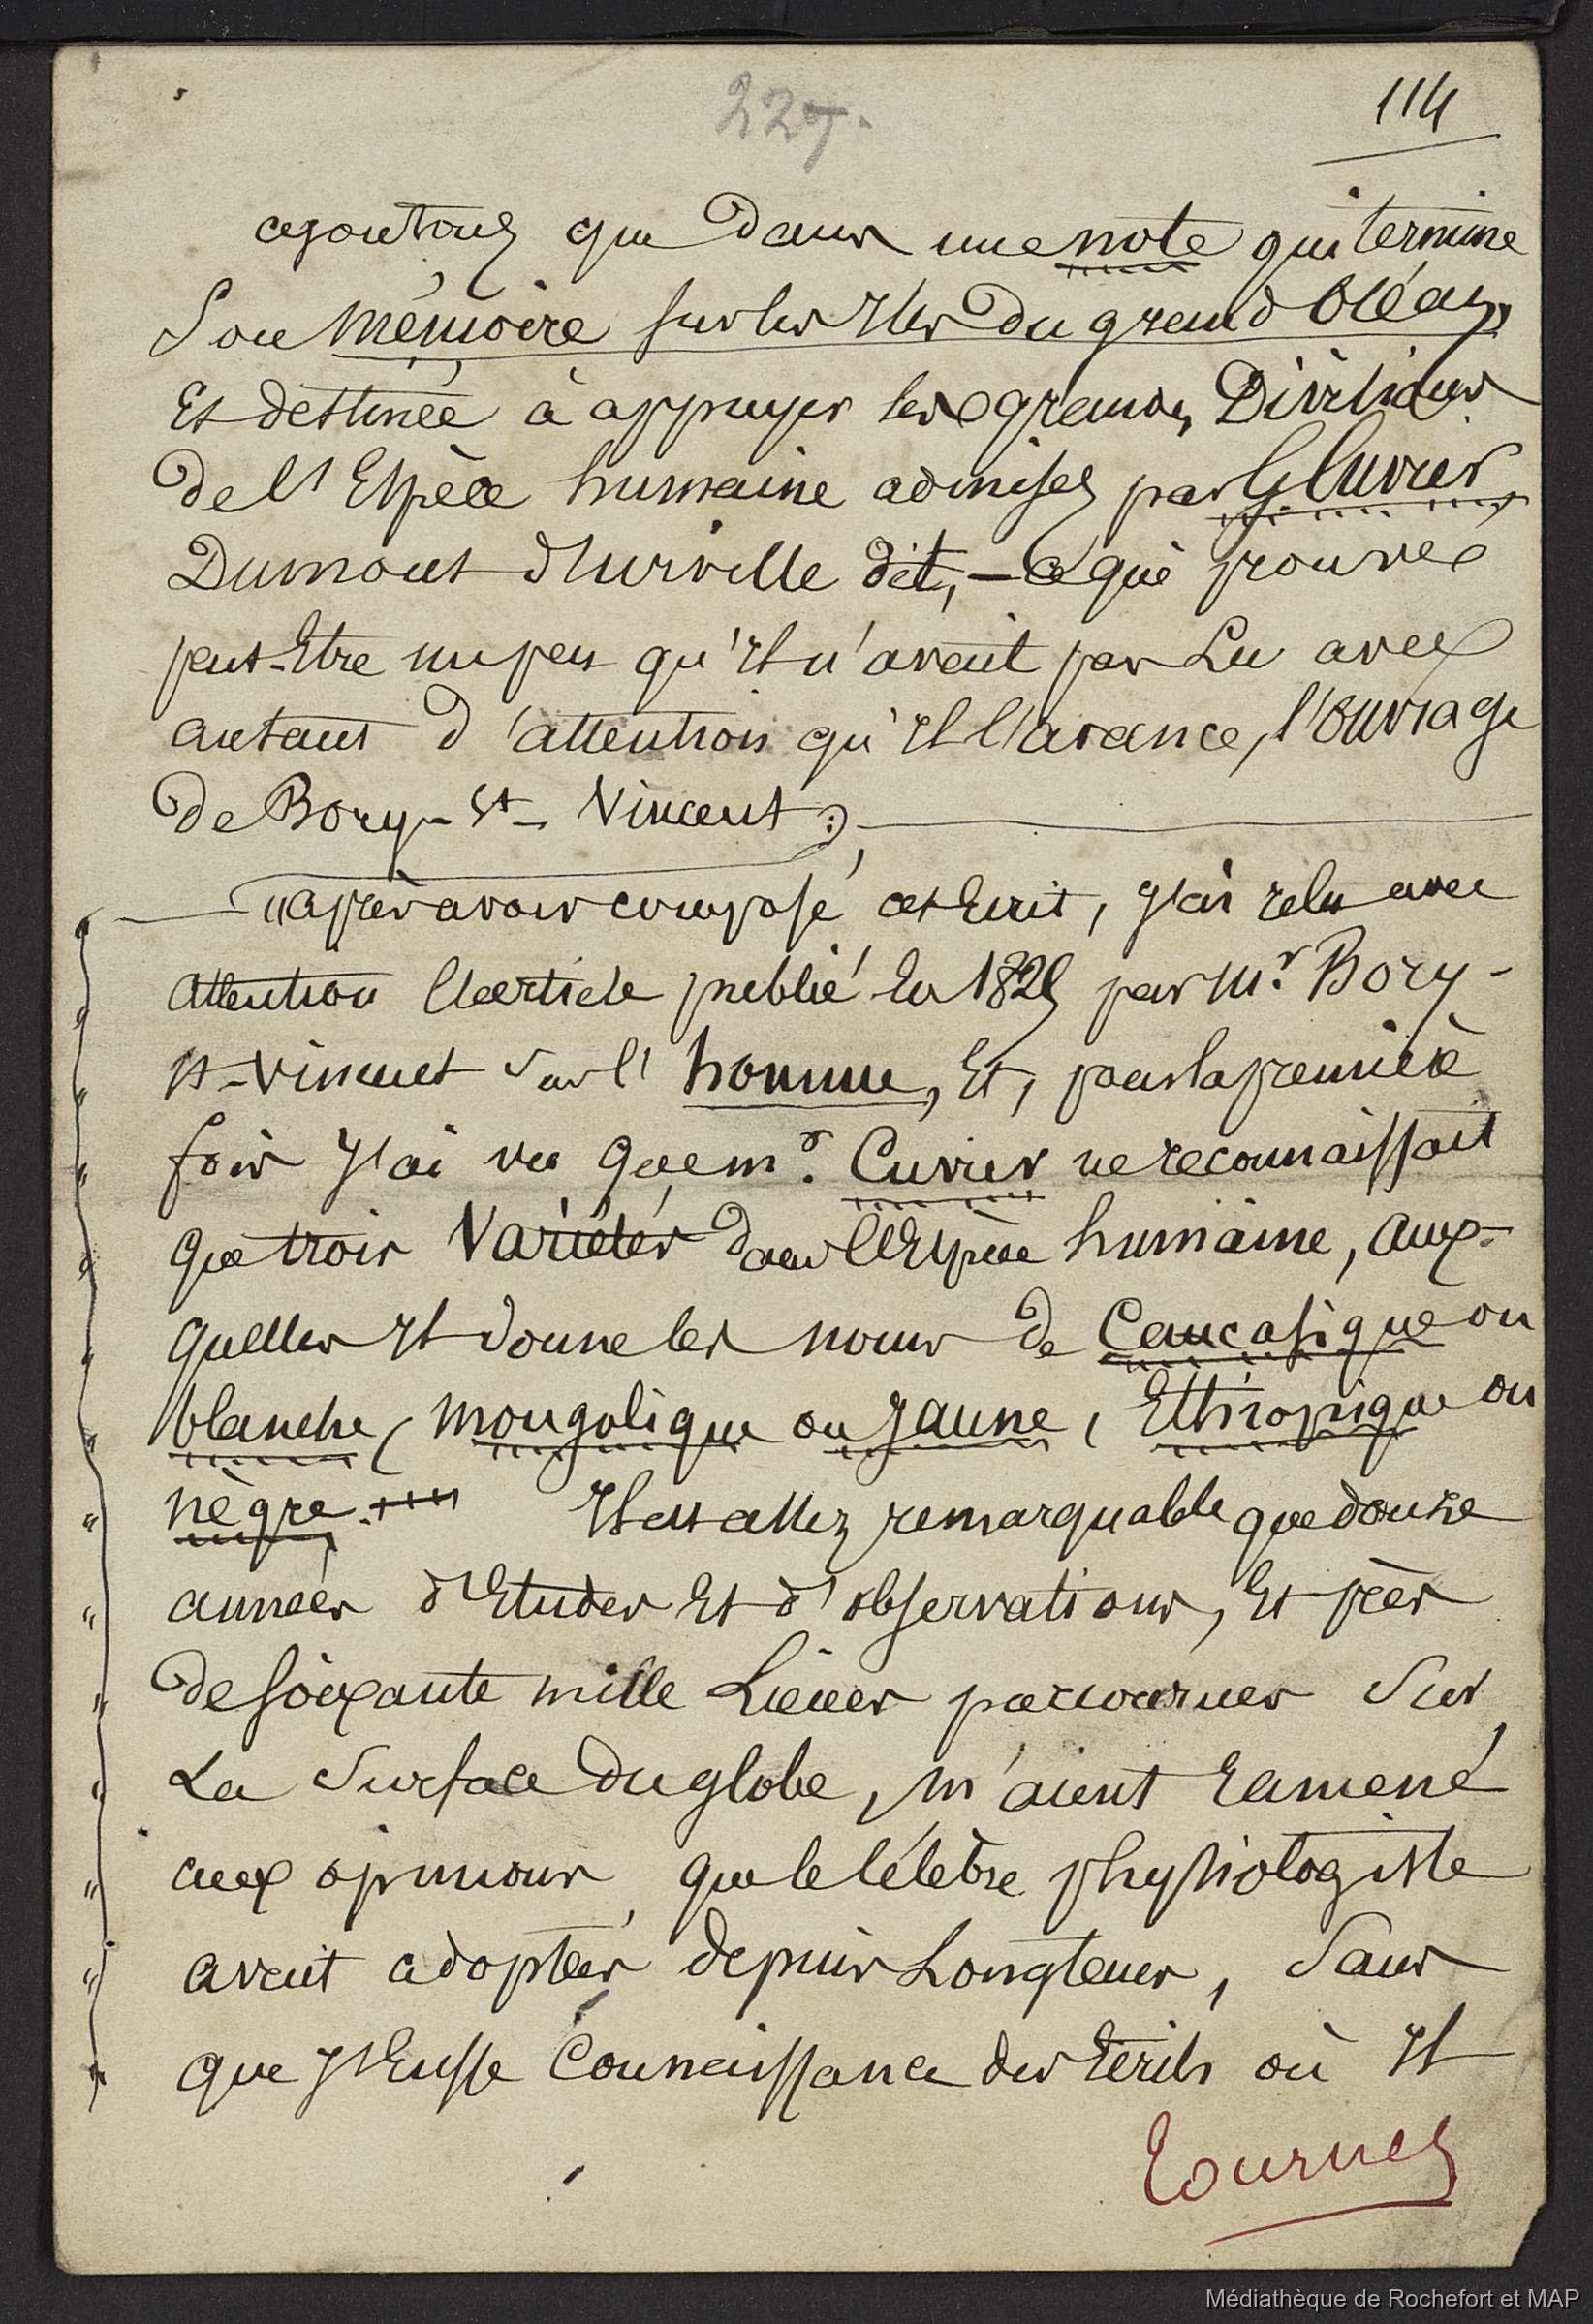 227.
114
ajoutons que dans une note qui termine
Son mémoire sur les Iles du grand Océan,
Et destinée à appuyer les grandes Divisions
de l'Espèce humaine admises par G Cuvier,
Dumont d'Urville dit, — Ce qui prouve
peut-Etre un peu qu'il n'avait pas Lu avec
autant d'attention qu'il l'avance, l'ouvrage
de Bory-St-Vincent:
"après avoir composé cet Ecrit, j'ai relu avec
attention l'article publié En 1825 par Mr. Bory-
St-Vincent Sur l'homme, Et, pour la première
fois j'ai vu que mr. Cuvier ne reconnaissait
que trois Variétés dans l'Espèce humaine, aux-
quelles il donne les noms de Caucasique ou
blanche, mongolique ou jaune, Ethiopique ou
nègre.... Il est assez remarquable que douze
années d'Etudes Et d'observations, Et près
de soixante mille Lieues parcourues Sur
La Surface du globe, m'aient ramené
aux opinions que le célèbre physiologiste
avait adoptées depuis Longtems, Sans
que j'Eusse Connaissance des Ecrits où il
Tournez
Médiathèque de Rochefort et MAP